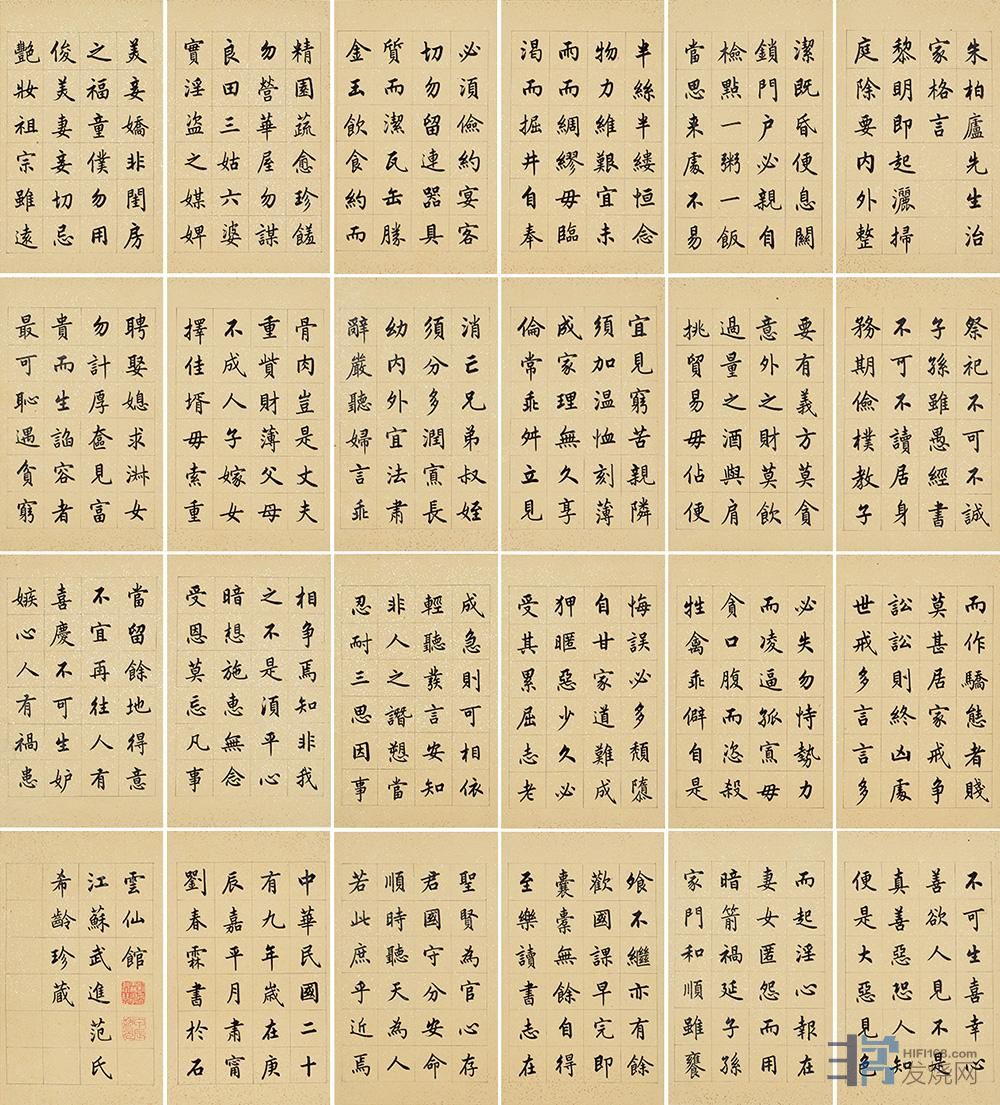 朱柏廬先生治
家格言
黎明即起灑掃
庭除要内外整
潔既昏便息關
鎖門户必親自
檢點一粥一飯
當思来處不易
半絲半縷恒念
物力維艱宜未
雨而綢繆毋臨
渴而掘井自奉
必須儉約宴客
切勿留連器具
質而潔瓦缶勝
金玉飲食約而
精園蔬愈珍饈
勿營華屋勿謀
良田三姑六婆
實淫盗之媒婢
美妾嬌非閨房
之福童僕勿用
俊美妻妾切忌
艷妝祖宗雖遠
祭祀不可不誠
子孫雖愚經書
不可不讀居身
務期儉樸教子
要有義方莫貪
意外之財莫飲
過量之酒與肩
挑貿易毋佔便
宜見窮苦親隣
須加温恤刻薄
成家理無久享
倫常乖舛立見
消亡兄弟叔姪
須分多潤寡長
幼内外宜法肅
辭嚴聽婦言乖
骨肉豈是丈夫
重貲財薄父母
不成人子嫁女
擇佳壻毋索重
聘娶媳求淋女
勿計厚奩見富
貴而生諂容者
最可恥遇貧窮
而作驕態者賤
莫甚居家戒争
訟訟則終凶處
世戒多言言多
必失勿恃勢力
而凌逼孤寡毋
貪口腹而恣殺
牲禽乖僻自是
悔誤必多頽隳
自甘家道難成
狎暱惡少久必
受其累屈志老
成急則可相依
輕聽發言安知
非人之譖愬當
忍耐三思因事
相争焉知非我
之不是須平心
暗想施惠無念
受恩莫忘凡事
當留餘地得意
不宜再往人有
喜慶不可生妒
嫉心人有禍患
不可生喜幸心
善欲人見不是
真善惡恐人知
便是大惡見色
而起淫心報在
妻女匿怨而用
暗箭禍延子孫
家門和順雖饔
飧不繼亦有餘
歡國課早完即
囊橐無餘自得
至樂讀書志在
聖賢為官心存
君國守分安命
順時聽天為人
若此庶乎近焉
中華民國二十
有九年歳在庚
辰嘉平月肅甯
劉春霖書於石
雲仙館
江蘇武進范氏
希齡珍藏
HIFI168.com
发烧网